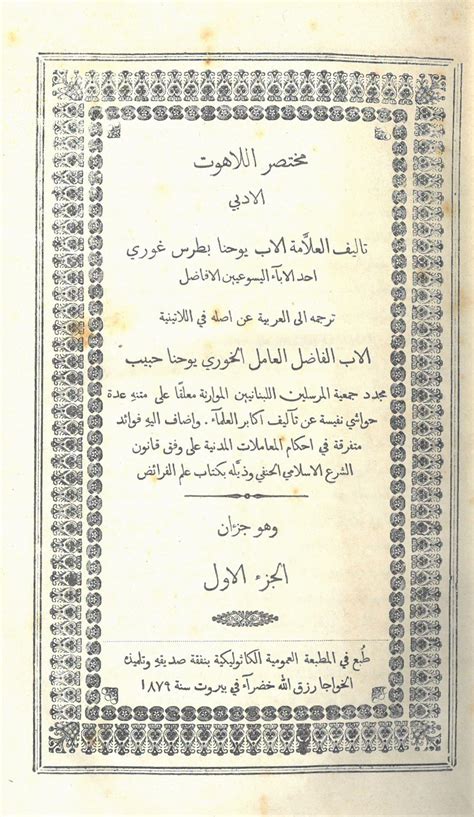 مختصر اللاهوت
الادبي
تاليف العلّامة الاب يوحنا بطرس غوري
احد الاباء اليسوعيين الافاضل
ترجمه الى العربية عن اصله في اللاتينية
الاب الفاضل العامل الخوري يوحنا حبيب
مجدد جمعية المرسلين اللبنانيين الموارنة معلقا على متنه عدة
حواشي نفيسة عن تآليف اكابر العلماء . واضاف اليه فوائد
متفرقة في احكام المعاملات المدنية على وفق قانون
الشرع الاسلامي الحنفي وذيّله بكتاب علم الفرائض
وهو جزءان
الجزء الاول
طُبع في المطبعة العمومية الكاثوليكية بنفقة صديقه وتلميذه
الخواجا رزق الله خضرا في بيروت سنة ١٨٧٩